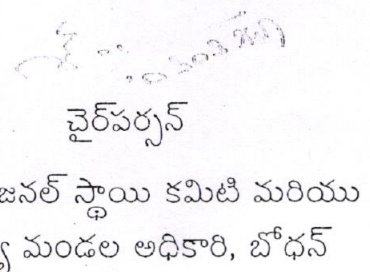 చైర్‌పర్సన్
జనల్ స్థాయి కమిటి మరియు
మండల అధికారి, బోధన్